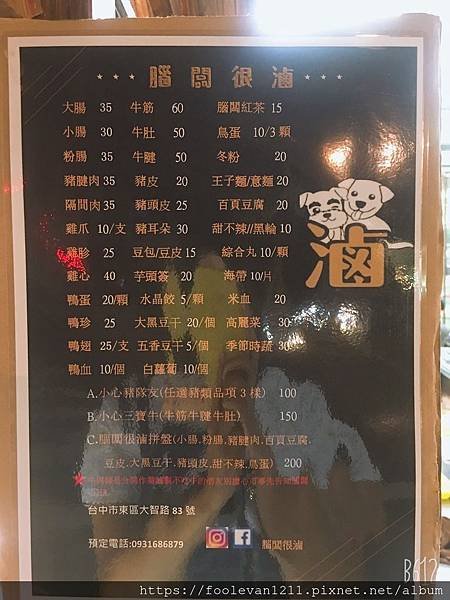 腦闆很滷
大腸 35 牛筋 60 腦闆紅茶 15
小腸 30 牛肚 50 鳥蛋 10/3顆
粉腸 35 牛腱 50 冬粉 20
豬腱肉 35 豬皮 20 王子麵/意麵 20
隔間肉 35 豬頭皮 25 百頁豆腐 20
雞爪 10/支 豬耳朵 30 甜不辣//黑輪 10
雞胗 25 豆包/豆皮 15 綜合丸 10/顆
雞心 40 芋頭簽 20 海帶 10/片
鴨蛋 20/顆 水晶餃 5/顆 米血 20
鴨珍 25 大黑豆干 20/個 高麗菜 30
鴨翅 25/支 五香豆干 5/個 季節時蔬 30
鴨血 10/個 白蘿蔔 10/個
滷
A.小心豬隊友(任選豬類品項3樣) 100
B.小心三寶牛(牛筋牛腱牛肚) 150
C.腦闆很滷拼盤(小腸.粉腸.豬腱肉.百頁豆腐.
豆皮.大黑豆干.豬頭皮.甜不辣.鳥蛋) 200
台中市東區大智路 83 號
預定電話:0931686879
腦闆很滷
https://foolevan1211.pixnet.net/album